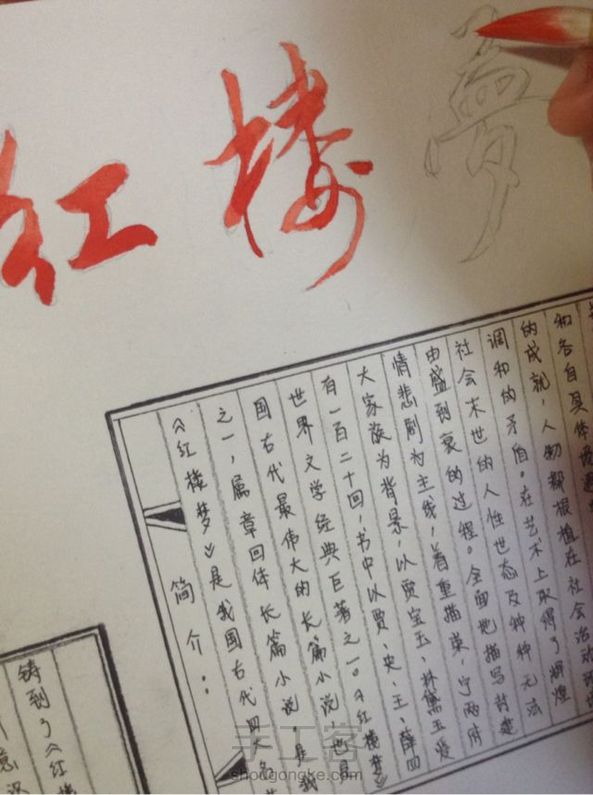 红楼夢
简介：
《红楼梦》是我国古代四大名
之一，属章回体长篇小说 是我
国古代最伟大的长篇小说，也是
世界文学经典巨著之一。《红楼梦》
有一百二十回，书中以贾、史、王、薛四
大家族为背景，以贾宝玉、林黛玉爱
情悲剧为主线，着重描荣、宁两府
由盛到衰的过程。全面地描写封建
社会末世的人性世态及种种无法
调和的矛盾。在艺术上取得了辉煌
的成就，人物都根植在社会治
和各自具体
铸到了《红楼
手工客
shougongke.com